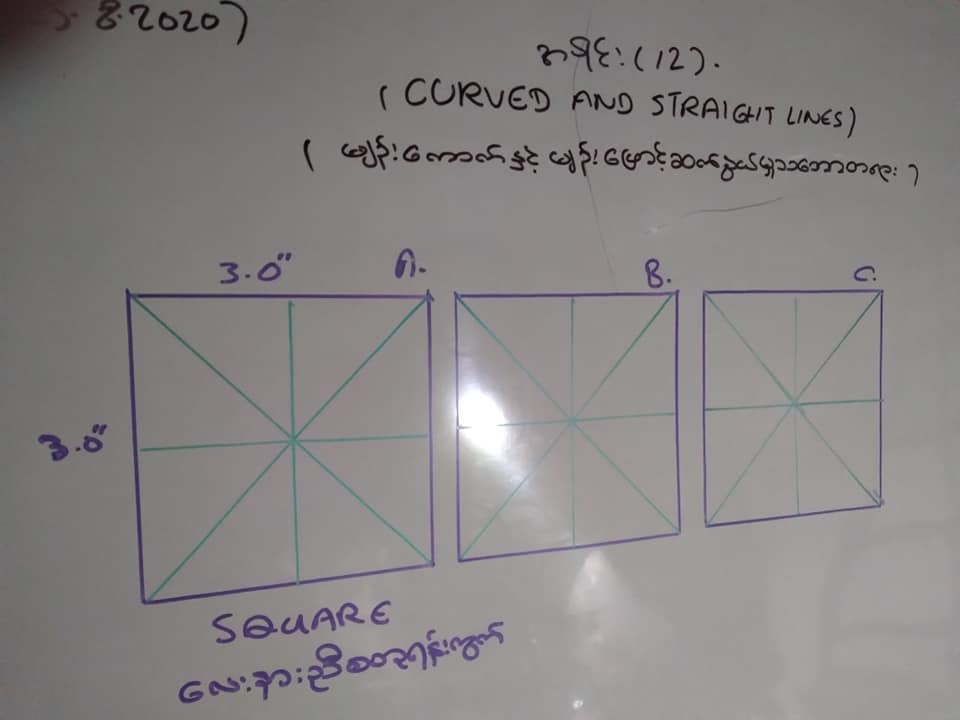 8.2020)
အခန်း (12).
( CURVED AND STRAIGHT LINES)
( မျဉ်းကောက်နှင့် မျဉ်းဖြောင့်ဆက်နွယ်မှုသဘောတရား )
3.0" A. B. C.
3.0"
SQUARE
လေးနားညီစတုရန်းကွက်